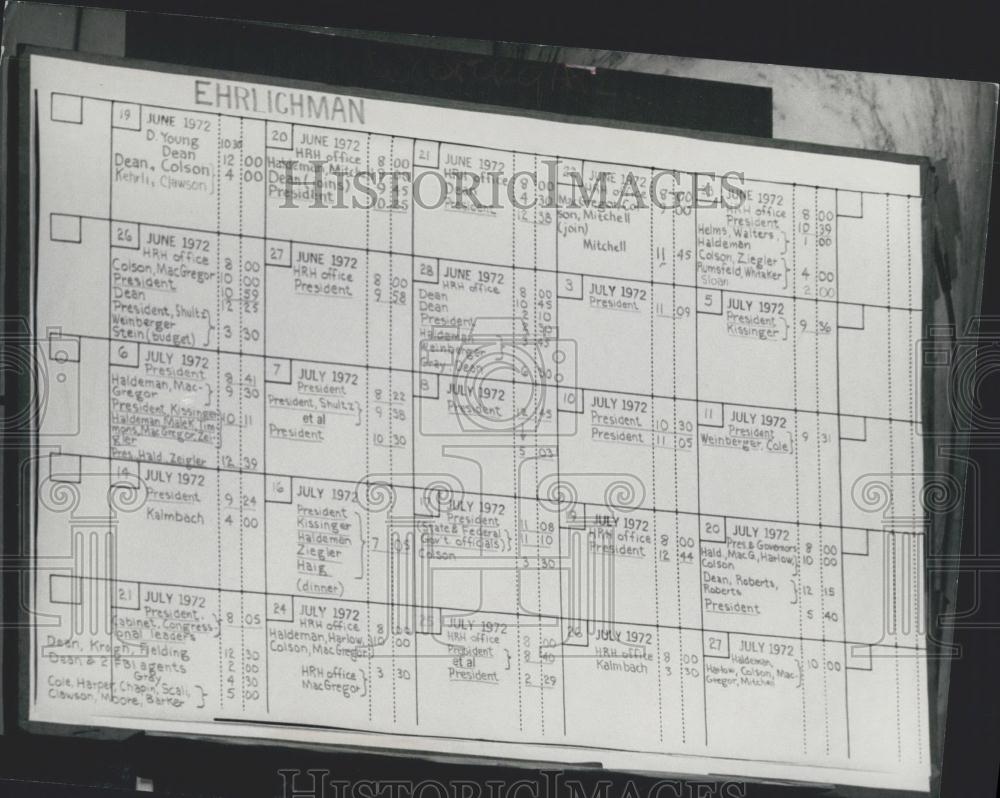 EHRLICHMAN
19 JUNE 1972
D. Young 10 30
Dean 12 00
Dean, Colson 4 00
Kehrli, Clawson
20 JUNE 1972
HRH office 8 00
Haldeman, Mitchell
Dean (joins) 9 45
President
21 JUNE 1972
HRH office 8 00
Dean 4 30
President 12 38
JUNE 1972
HRH office 8 00
MacGregor, Col- 9 00
son, Mitchell
(join)
Mitchell 11 45
JUNE 1972
HRH office 8 00
President 10 39
Helms, Walters, 1 00
Haldeman
Colson, Ziegler 4 00
Rumsfeld, Whitaker
Sloan 2 00
26 JUNE 1972
HRH office 8 00
Colson, MacGregor 10 00
President 10 59
Dean 12 25
President, Shultz
Weinberger 3 30
Stein (budget)
27 JUNE 1972
HRH office 8 00
President 9 58
28 JUNE 1972
HRH office 8 00
Dean 10 45
Dean 2 10
President
Haldeman 45
Weinberger
Gray, Dean 6
3 JULY 1972
President 11 09
5 JULY 1972
President 9 36
Kissinger
6 JULY 1972
President 8 41
Haldeman, Mac- 9 30
Gregor
President, Kissinger 10 11
Haldeman, Malek, Tim-
mons, MacGregor, Zei-
gler
Pres, Hald, Zeigler 12 39
7 JULY 1972
President 8 22
President, Shultz 9 38
et al
President 10 30
8 JULY 1972
President 12 45
5 03
10 JULY 1972
President 10 30
President 11 05
11 JULY 1972
President 9 31
Weinberger, Cole
14 JULY 1972
President 9 24
Kalmbach 4 00
16 JULY 1972
President
Kissinger
Haldeman 7 05
Ziegler
Haig
(dinner)
17 JULY 1972
President 11 08
(State & Federal 11 10
Gov't officials)
Colson 3 30
19 JULY 1972
HRH office 8 00
President 12 44
20 JULY 1972
Pres. & Governors 8 00
Hald, MacG, Harlow, 10 00
Colson
Dean, Roberts, 12 15
Roberts
President 5 40
21 JULY 1972
President, 8 05
Cabinet, Congress-
ional leaders
Dean, Krogh, Fielding 12 30
Dean & 2 FBI agents 2 00
Gray 4 30
Cole, Harper, Chapin, Scali, 5 00
Clawson, Moore, Barker
24 JULY 1972
HRH office 8 00
Haldeman, Harlow, 10 00
Colson, MacGregor
HRH office 3 30
MacGregor
25 JULY 1972
HRH office 8 00
President 8 40
et al
President 2 29
26 JULY 1972
HRH office 8 00
Kalmbach 3 30
27 JULY 1972
Haldeman, 10 00
Harlow, Colson, Mac-
Gregor, Mitchell
HISTORIC IMAGES
HISTORIC IMAGES
HISTORIC IMAGES